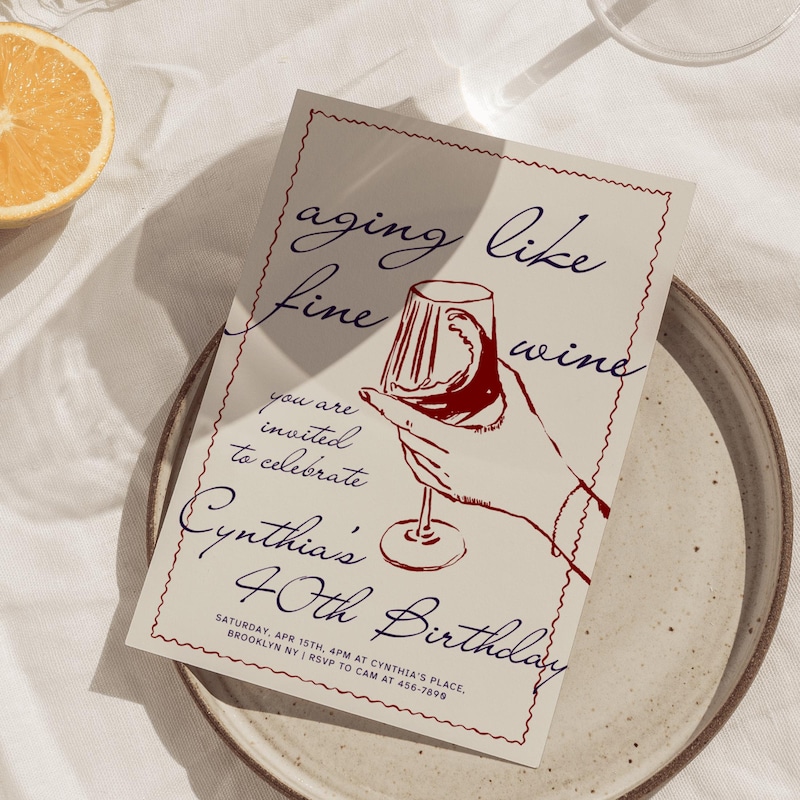 aging like
fine wine
you are
invited
to celebrate
Cynthia's
40th Birthday
SATURDAY, APR 15TH, 4PM AT CYNTHIA'S PLACE,
BROOKLYN NY | RSVP TO CAM AT 456-7890